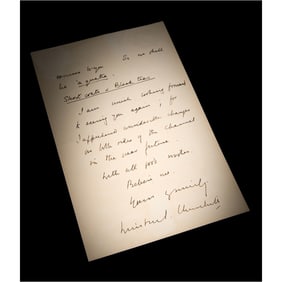 Princess [?] So we shall
be "a quatre".
Short coats & Black ties.
I am much looking forward
to seeing you again & for
I apprehend considerable changes
on both sides of the Channel
in the near future.
With all good wishes,
Believe me,
Yours sincerely
Winston S. Churchill